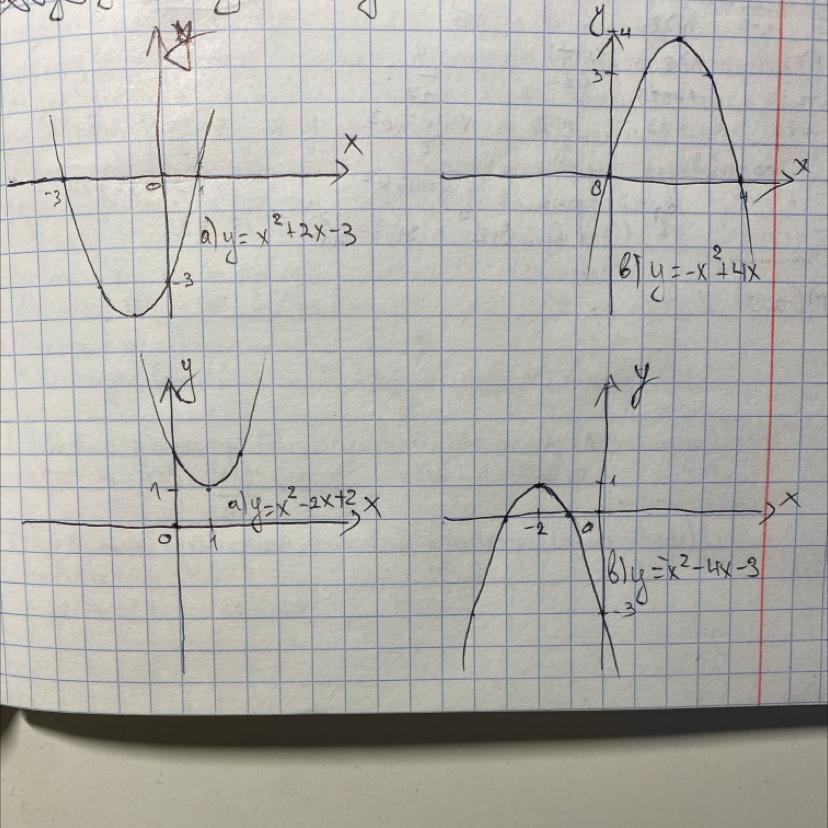 y
x
-3 0 1
а) y = x²+2x-3
-3
y 4
3
x
0 4
в) y = -x²+4x
y
1
а) y = x²-2x+2 x
0 1
y
1
x
-2 0
в) y = -x²-4x-3
-3